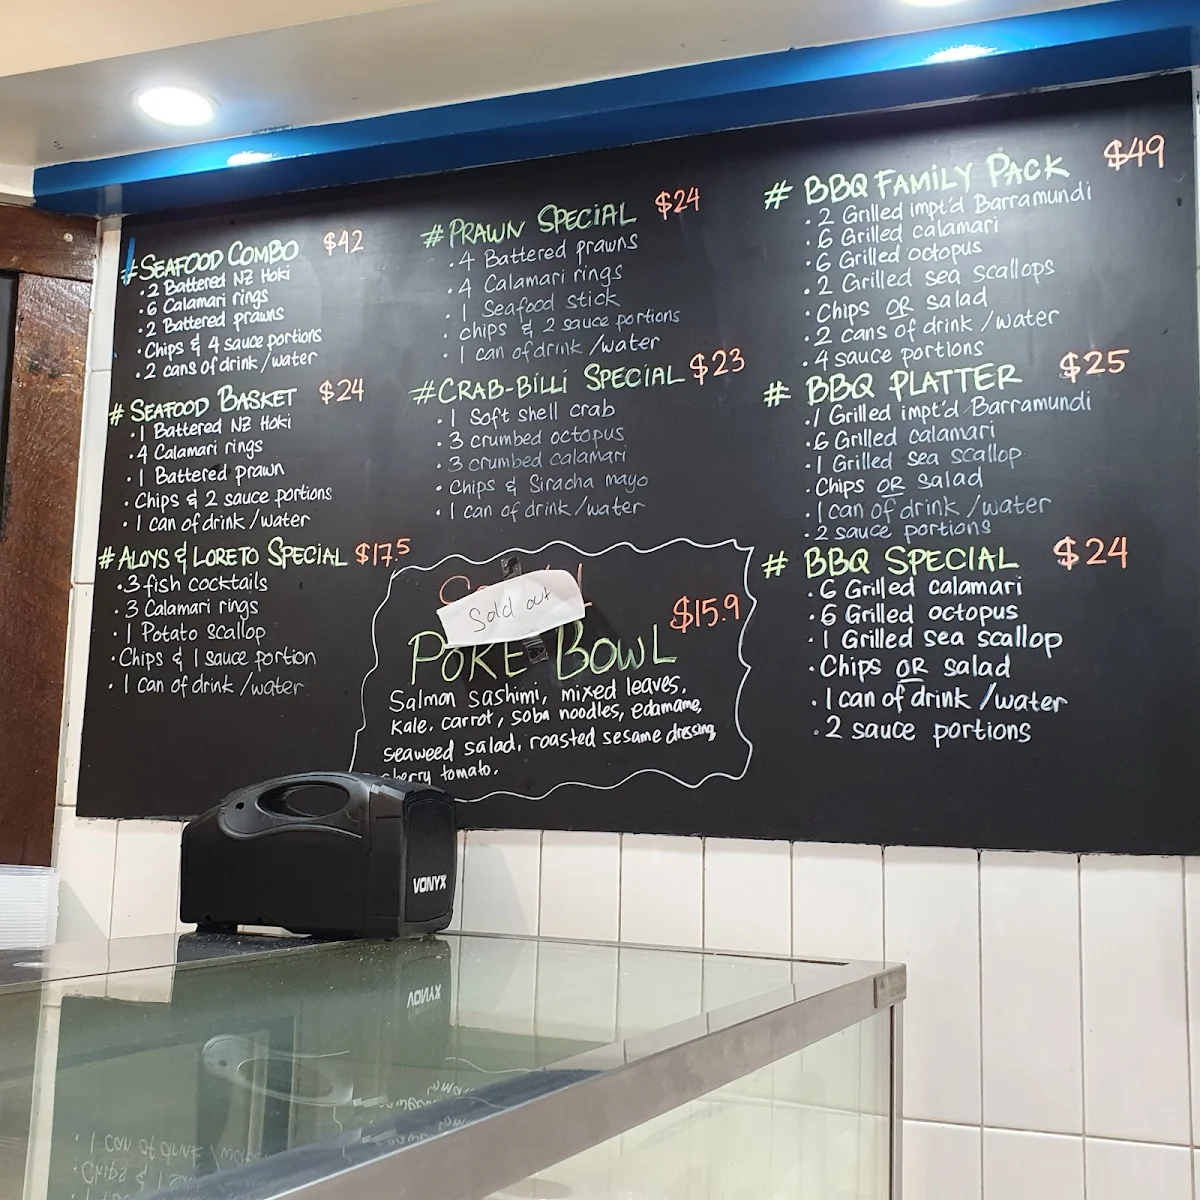 #SEAFOOD COMBO $42
· 2 Battered NZ Hoki
· 6 Calamari rings
· 2 Battered prawns
· Chips & 4 sauce portions
· 2 cans of drink/water
# SEAFOOD BASKET $24
· 1 Battered NZ Hoki
· 4 Calamari rings
· 1 Battered prawn
· Chips & 2 sauce portions
· 1 can of drink/water
# ALOYS & LORETO SPECIAL $17.5
· 3 fish cocktails
· 3 Calamari rings
· 1 Potato scallop
· Chips & 1 sauce portion
· 1 can of drink/water
# PRAWN SPECIAL $24
· 4 Battered prawns
· 4 Calamari rings
· 1 Seafood stick
· chips & 2 sauce portions
· 1 can of drink/water
# CRAB-BILLI SPECIAL $23
· 1 Soft shell crab
· 3 crumbed octopus
· 3 crumbed calamari
· Chips & Siracha mayo
· 1 can of drink/water
Sold out
$15.9
POKE BOWL
Salmon sashimi, mixed leaves,
Kale, carrot, soba noodles, edamame,
seaweed salad, roasted sesame dressing,
cherry tomato.
# BBQ FAMILY PACK $49
· 2 Grilled impt'd Barramundi
· 6 Grilled calamari
· 6 Grilled octopus
· 2 Grilled sea scallops
· Chips OR salad
· 2 cans of drink/water
· 4 sauce portions
# BBQ PLATTER $25
· 1 Grilled impt'd Barramundi
· 6 Grilled calamari
· 1 Grilled sea scallop
· Chips OR salad
· 1 can of drink/water
· 2 sauce portions
# BBQ SPECIAL $24
· 6 Grilled calamari
· 6 Grilled octopus
· 1 Grilled sea scallop
· Chips OR salad
· 1 can of drink/water
· 2 sauce portions
VONYX